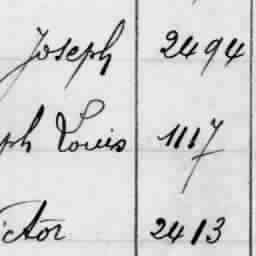 Joseph 2494
ph Louis 1117
ictor 2413